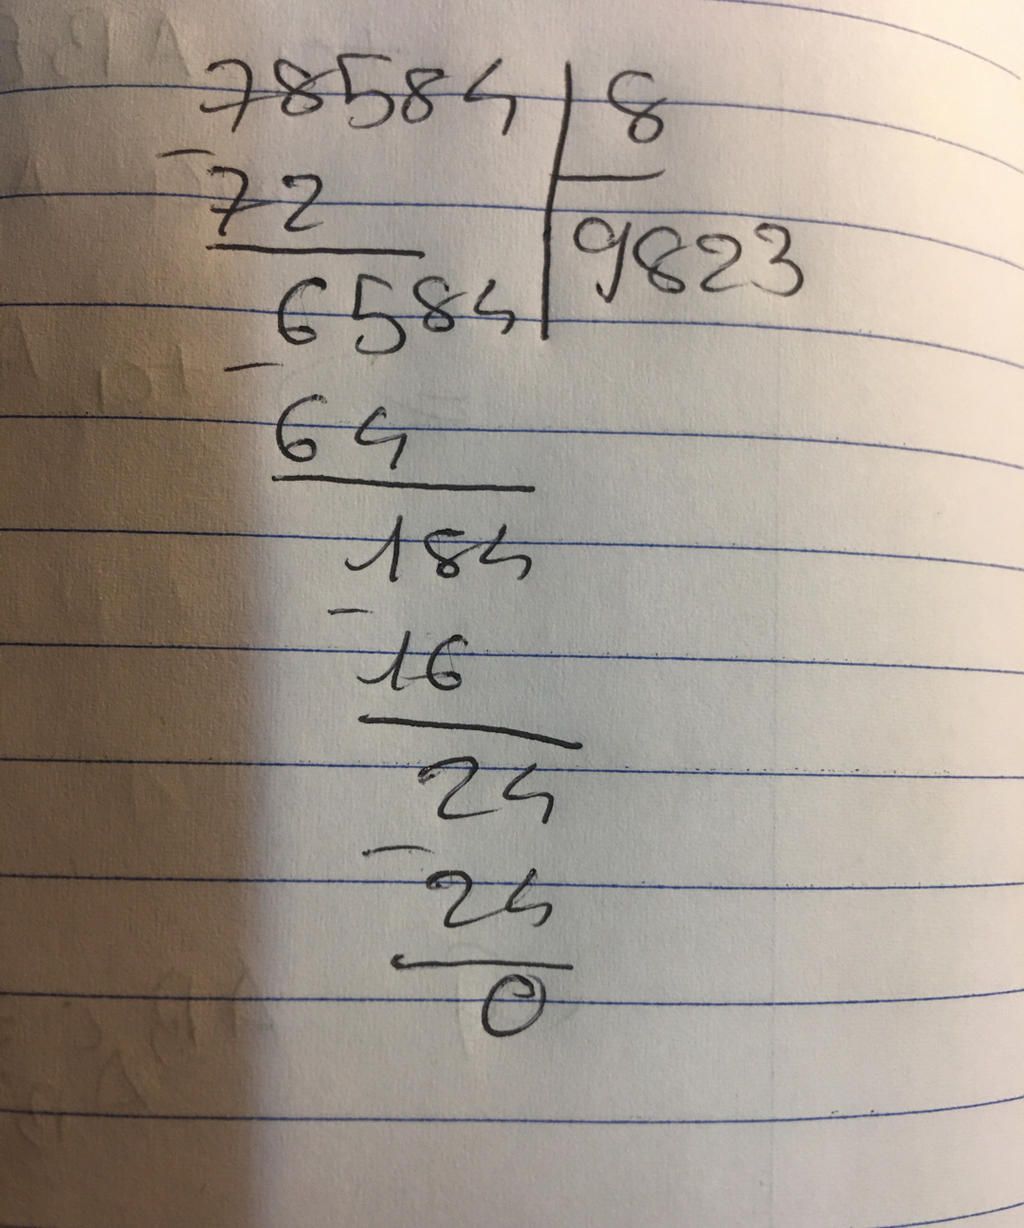 78584 8
- 72
9823
6584
- 64
184
- 16
24
- 24
0